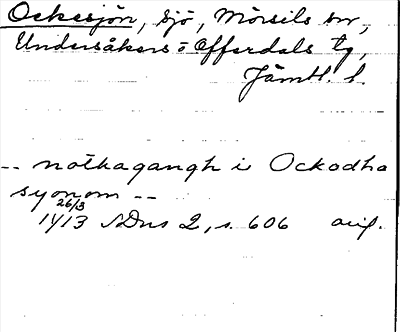 Ockesjön, sjö, Mörsils sn,
Undersåkers o Offerdals tg,
Jämtl. l.
-- nothagangh i Ockodha
syonom --
26/3
1413 SDns 2, s. 606 orig.